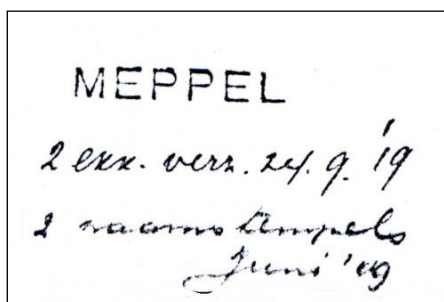 MEPPEL
2 exx. verz. 24.9.'19
2 naamstempels
Juni '19